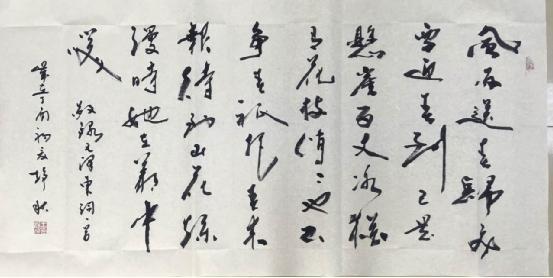 風雨送春歸飛
雪迎春到已是
懸崖百丈冰猶
有花枝俏〻也不
争春祇把春来
報待到山花爛
漫時她在叢中
笑
敬録毛澤東詞一首
丁酉初夏 秋